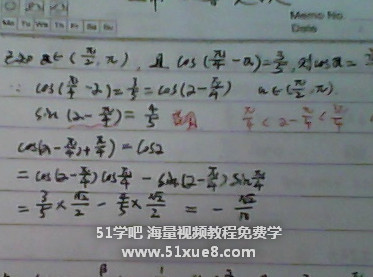 Memo No.
Date
Mo Tu We Th Fr Sa Su
已知 α∈(π/2, π), 且 cos(π/4 - α) = 3/5, 求 cosα =
∵ cos(π/4 - α) = 3/5 = cos(α - π/4) α∈(π/2, π)
sin(α - π/4) = 4/5 π/4 < α - π/4 < 3π/4
cos(α - π/4 + π/4) = cosα
= cos(α - π/4) cos π/4 - sin(α - π/4) sin π/4
= 3/5 × √2/2 - 4/5 × √2/2 = - √2/10
51学吧 海量视频教程免费学
www.51xue8.com